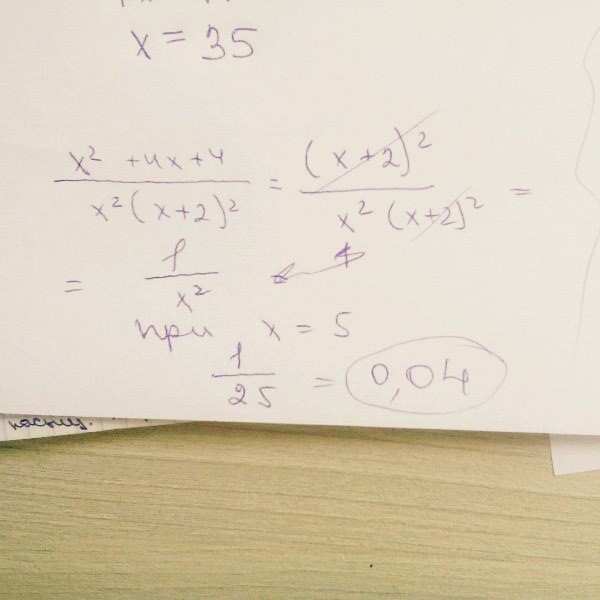 x = 35
x² + 4x + 4 / x² (x + 2)² = (x + 2)² / x² (x + 2)² =
= 1 / x²
при x = 5
1 / 25 = 0,04